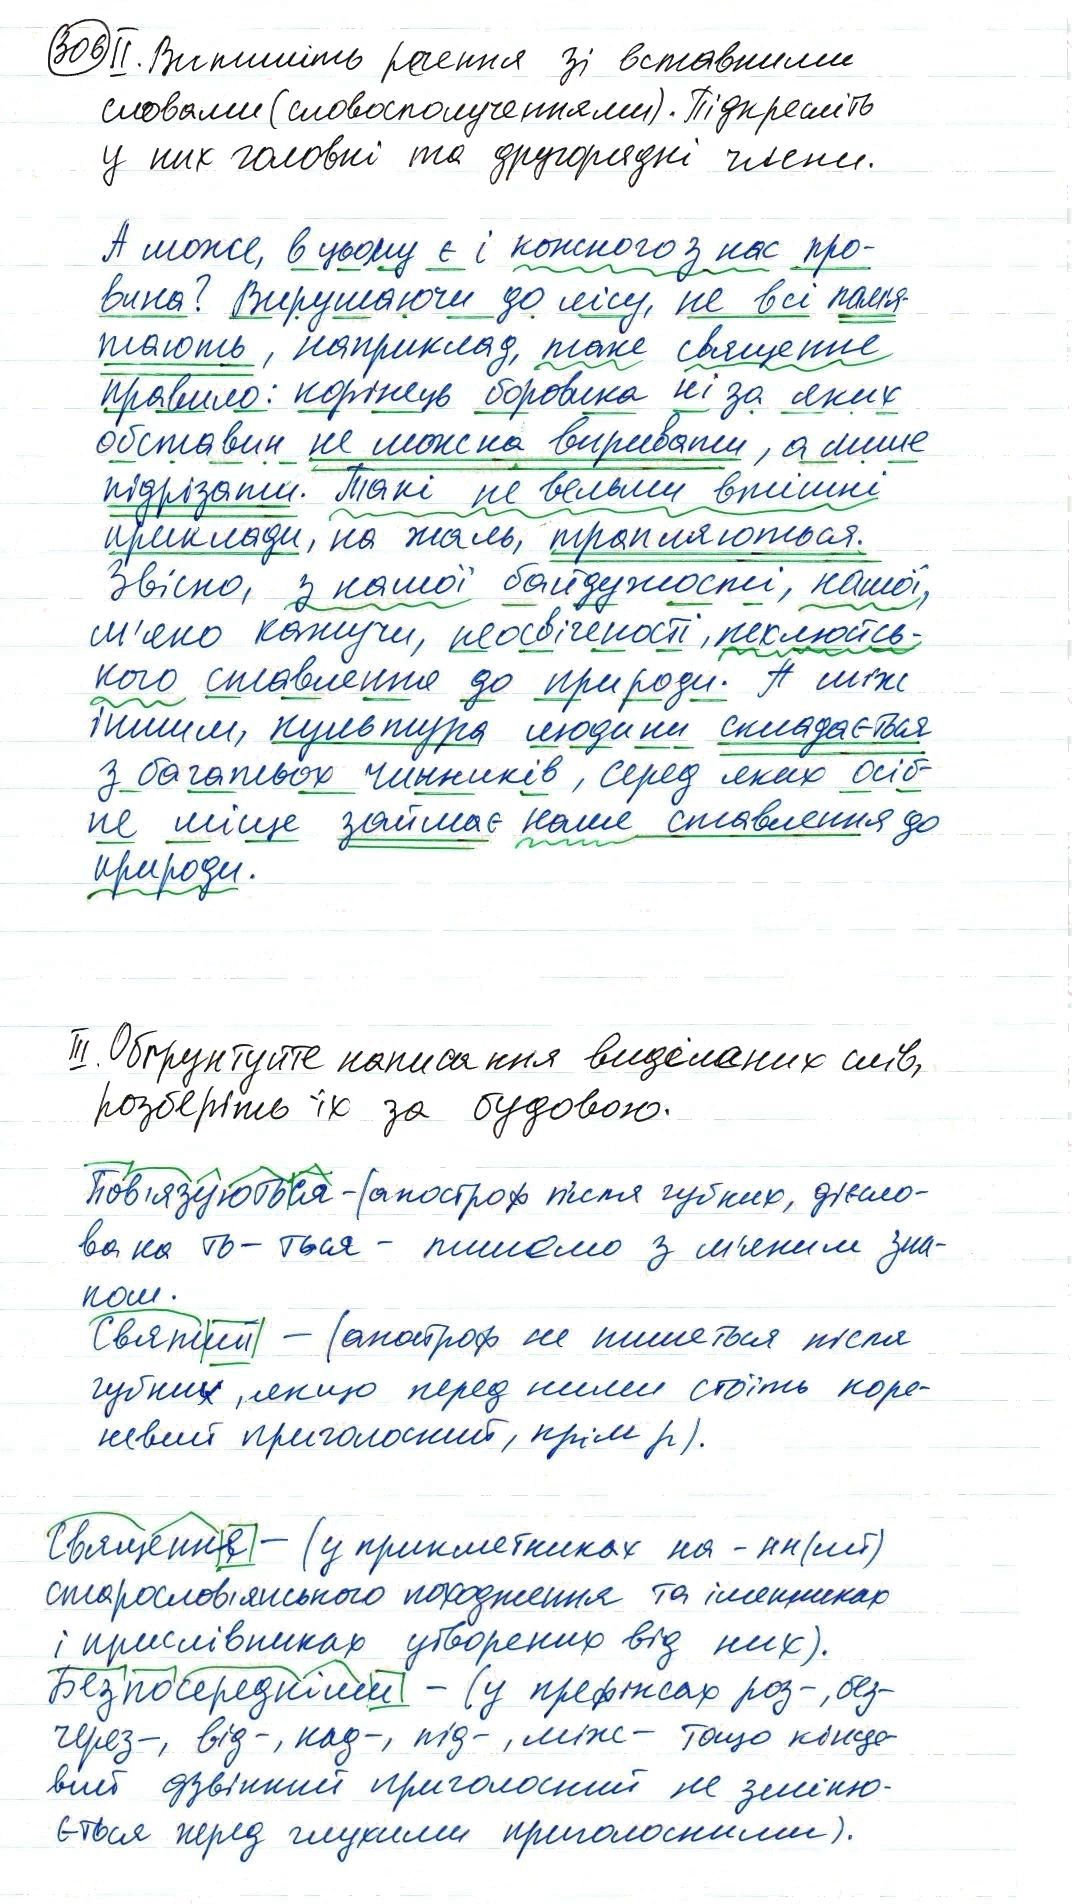 306 II. Випишіть речення зі вставними
словами (словосполученнями). Підкресліть
у них головні та другорядні члени.
А може, в цьому є і кожного з нас про-
вина? Вирушаючи до лісу, не всі пам'я-
тають, наприклад, таке священне
правило: корінець боровика ні за яких
обставин не можна виривати, а лише
підрізати. Такі не вельми втішні
приклади, на жаль, трапляються.
Звісно, з нашої байдужості, нашої,
м'яко кажучи, неосвіченості, неклюйсь-
кого ставлення до природи. А між
іншим, культура людини складається
з багатьох чинників, серед яких осіб-
не місце займає наше ставлення до
природи.
III. Обґрунтуйте написання виділених слів,
розберіть їх за будовою.
Пов'язуються - (апостроф після губних, дієсло-
ва на ть- ться - пишемо з м'яким зна-
ком.
Святий - (апостроф не пишеться після
губних, якщо перед ними стоїть коре-
невий приголосний, крім р).
Священне - (у прикметниках на - нн(ий)
старослов'янського походження та іменниках
і прислівниках утворених від них).
Безпосередніми - (у префіксах роз-, без-
через-, від-, над-, під-, між- тощо кінце-
вий дзвінкий приголосний не зміню-
ється перед глухими приголосними).